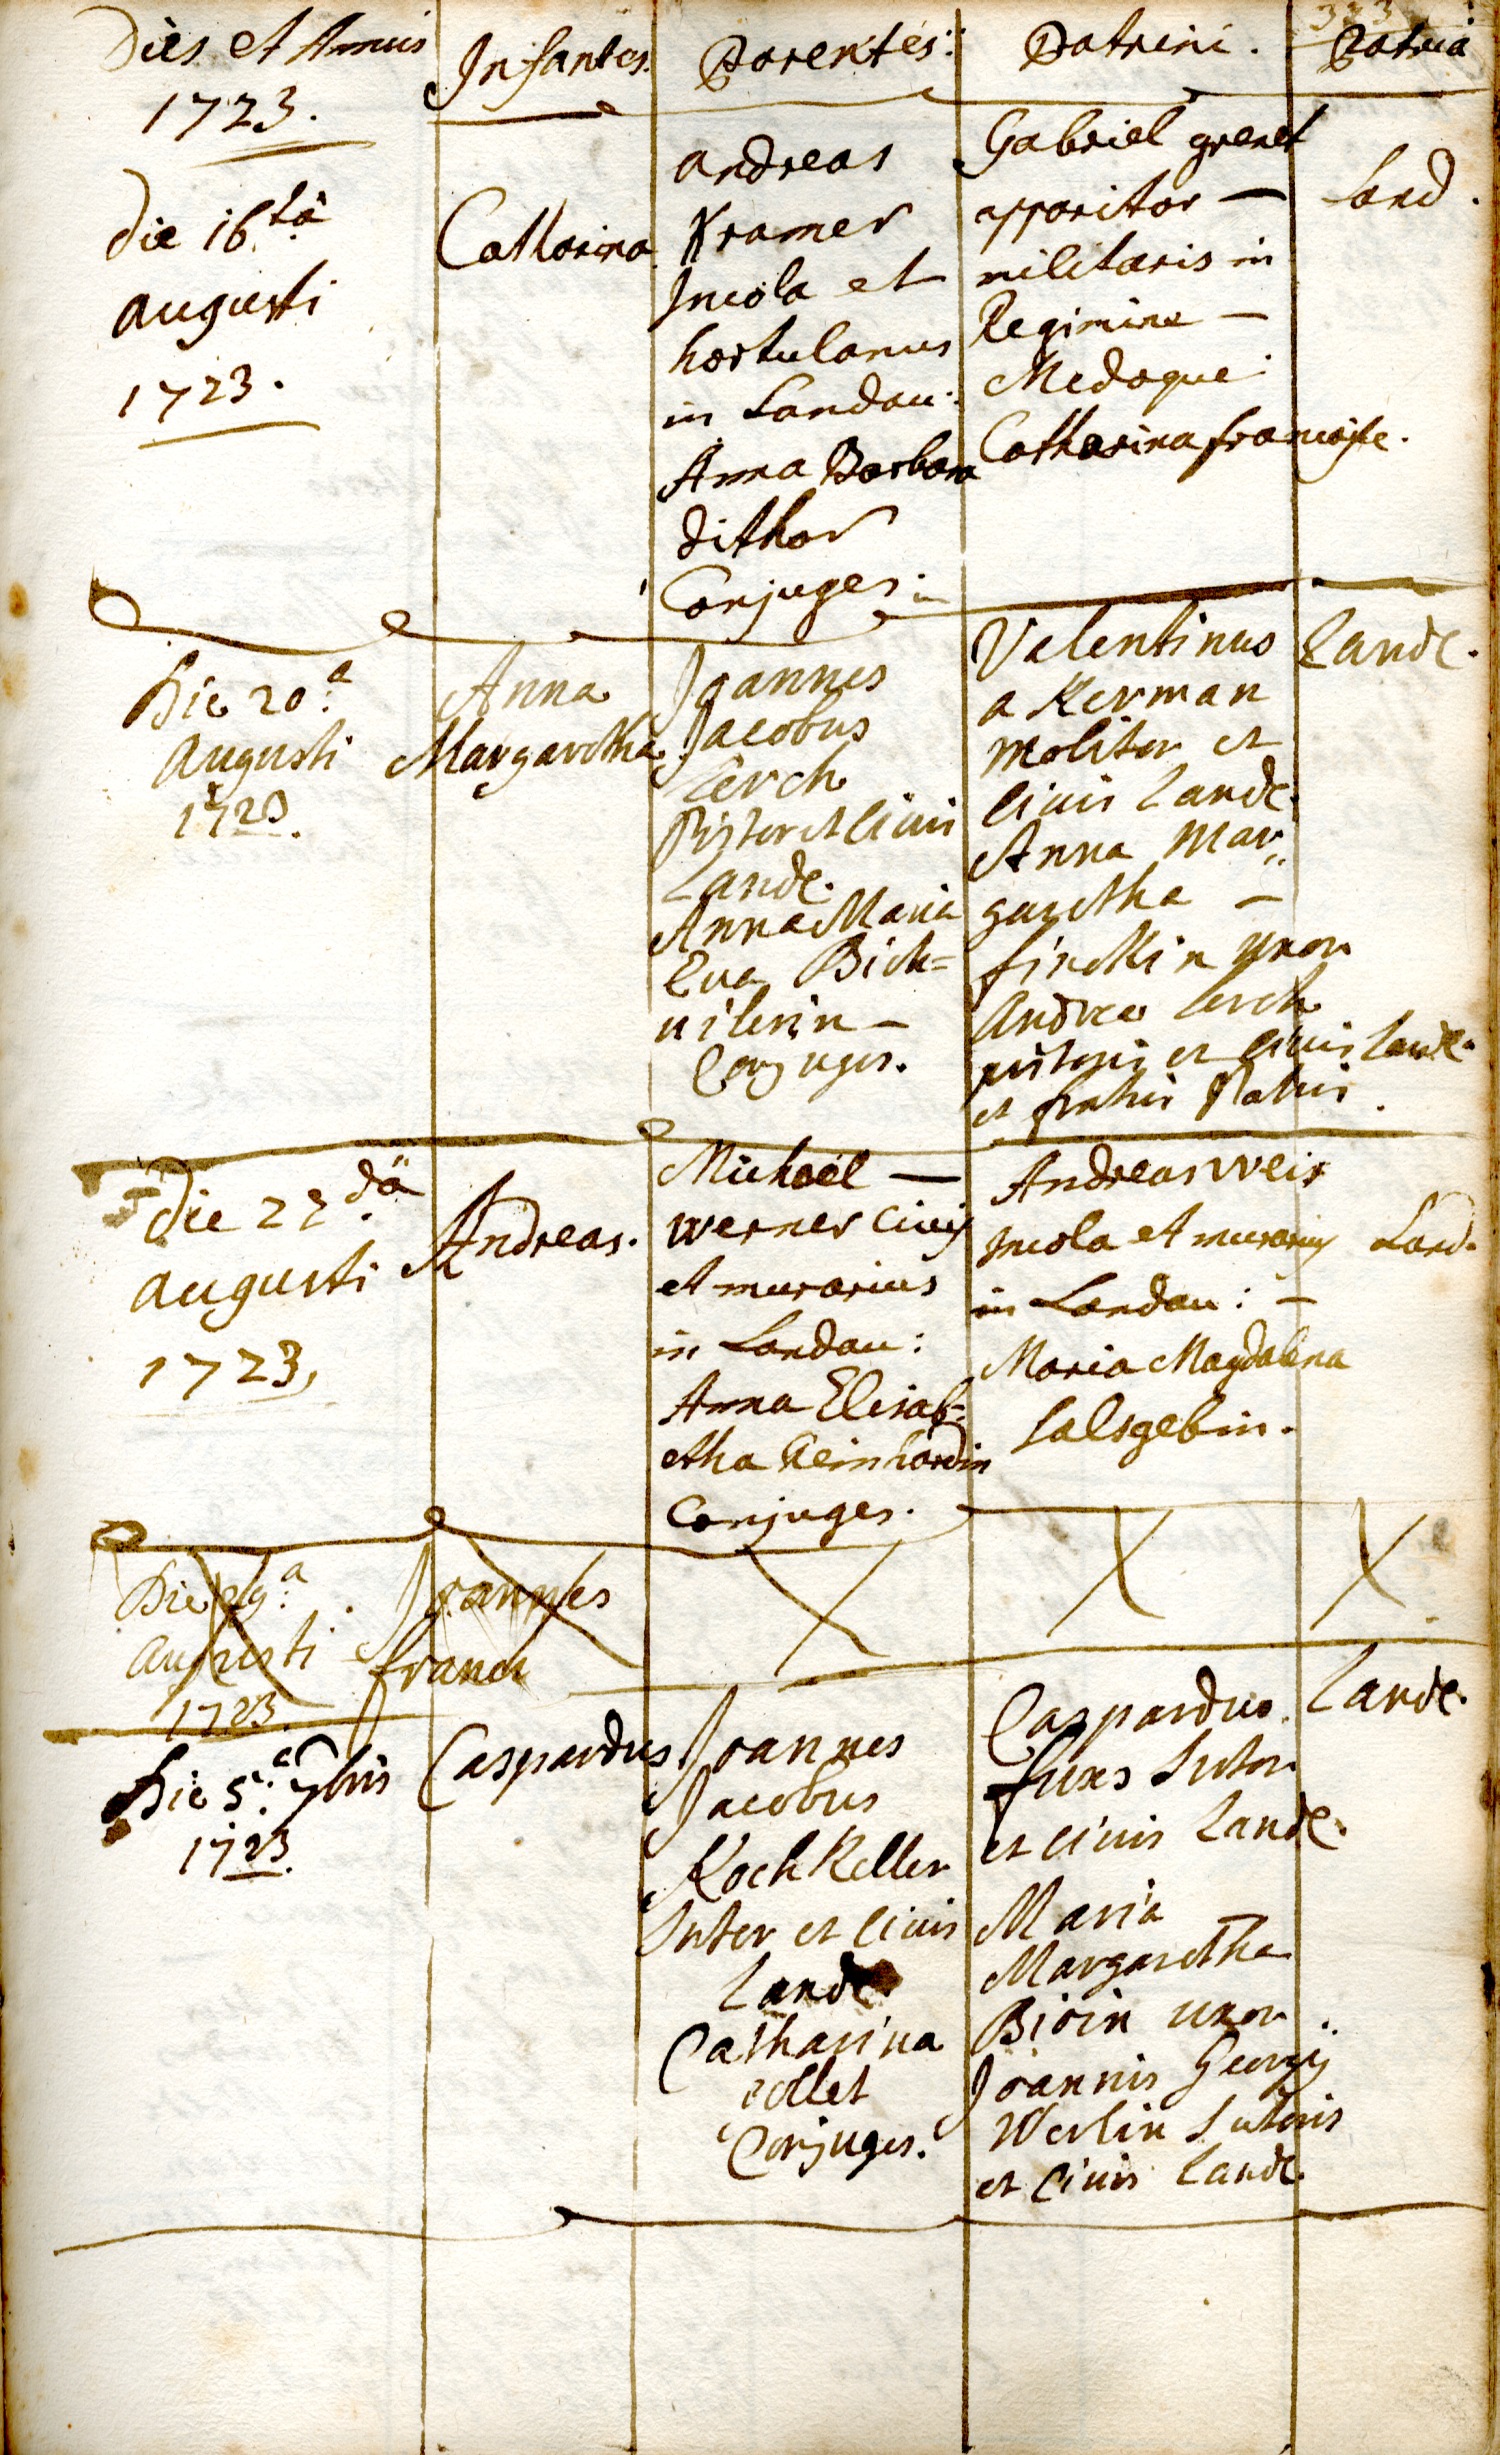 323
Dies et Annus
1723.
Infantes.
Parentes:
Patrini.
Patria
die 16.tâ
augusti
1723.
Catharina
andreas
Kramer
Incola et
hortulanus
in Landau:
Anna Barbara
dithar
Conjuges:
Gabriel grenet
apparitor —
militaris in
Regimine —
Medoque
Catharina francoise.
Land.
Die 20.a
Augusti
1723.
Anna
Margaretha
Joannes
Jacobus
Lerch
Pistor et Civis
Land.
Anna Maria
Eva Bich=
uilerin —
Conjuges.
Valentinus
a Kerman
molitor et
Civis Land.
Anna Mar,,
garetha —
finckin uxor
Andreae Lerch
pistoris et Civis Land.
et fratris Patris.
Land.
Die 22.dâ
augusti
1723,
Andreas.
Michaël —
Werner Civis
et murarius
in Landau:
Anna Elisab=
etha Reinhardin
Conjuges.
Andreas Weis
Incola et murarius
in Landau: —
Maria Magdalena
Salsgebin.
Land.
Die 29.a
Augusti
1723.
Joannes
franc
Die 5.a 7bris
1723.
Caspardus
Joannes
Jacobus
Koch Keller
Sutor et Civis
Land.
Catharina
collet
Conjuges.
Caspardus
fuxs Sutor
et Civis Land.
Maria —
Margaretha
Bioin uxor
Joannis Georgij
Werlin Sutoris
et Civis Land.
Land.